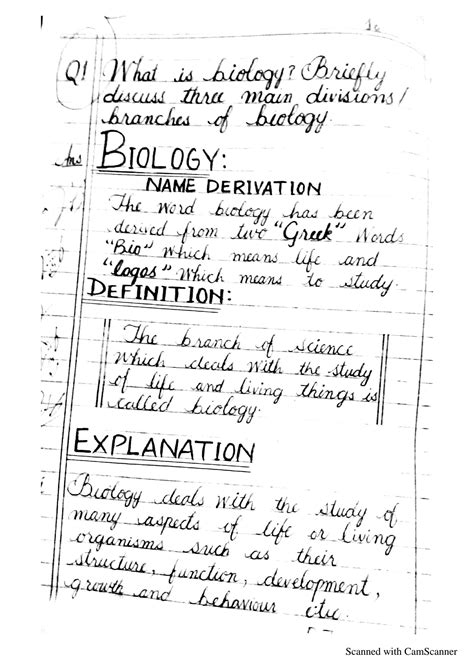 Q1 What is biology? Briefly
discuss three main divisions/
branches of biology.
Ans BIOLOGY:
NAME DERIVATION
The word biology has been
derived from two "Greek" words
"Bio" which means life and
"logos" which means to study.
DEFINITION:
The branch of science
which deals with the study
of life and living things is
called biology.
EXPLANATION
Biology deals with the study of
many aspects of life or living
organisms such as their
structure, function, development,
growth and behaviour etc.
Scanned with CamScanner